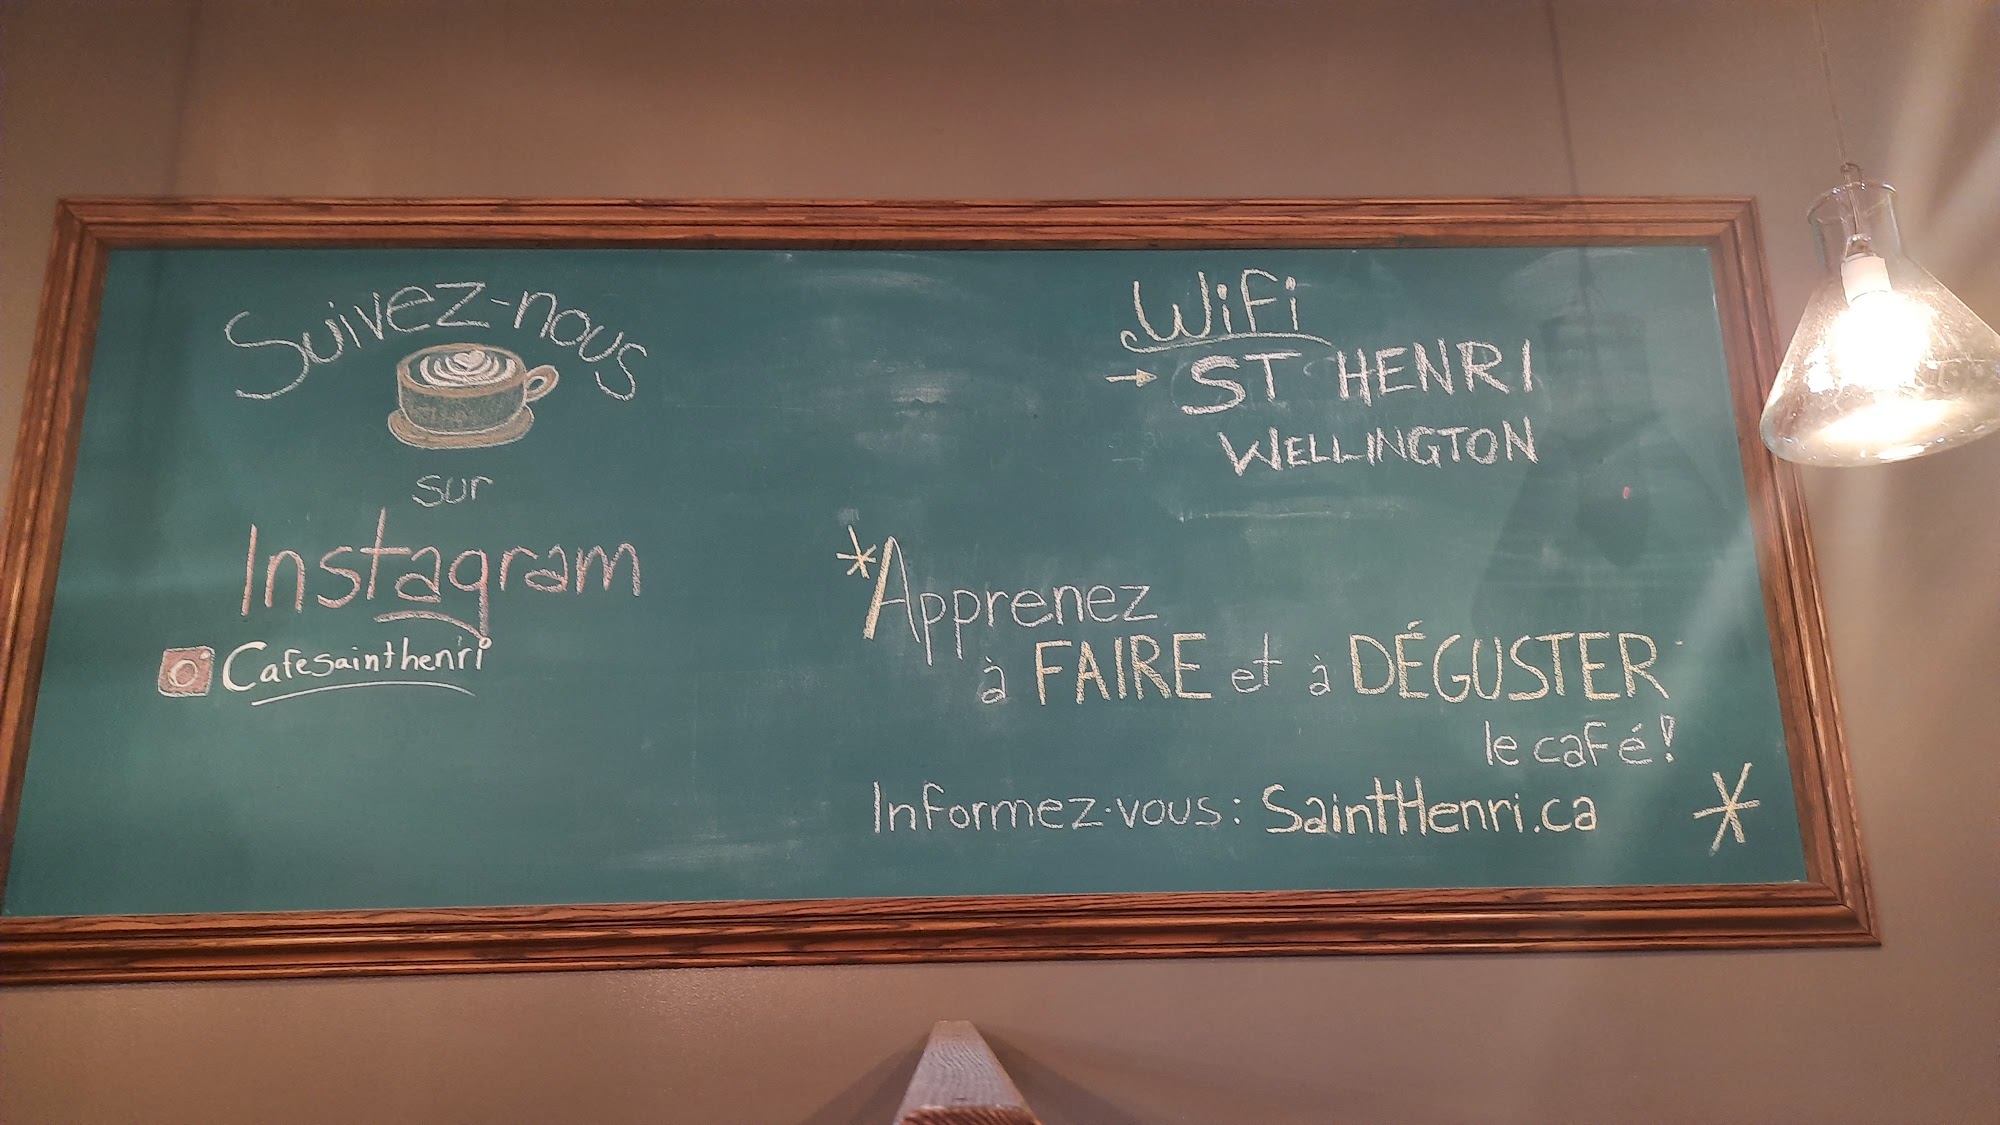 Suivez-nous
sur
Instagram
Cafesainthenri
WiFi
→ ST HENRI
WELLINGTON
*Apprenez
à FAIRE et à DÉGUSTER
le café!
Informez-vous: SaintHenri.ca *